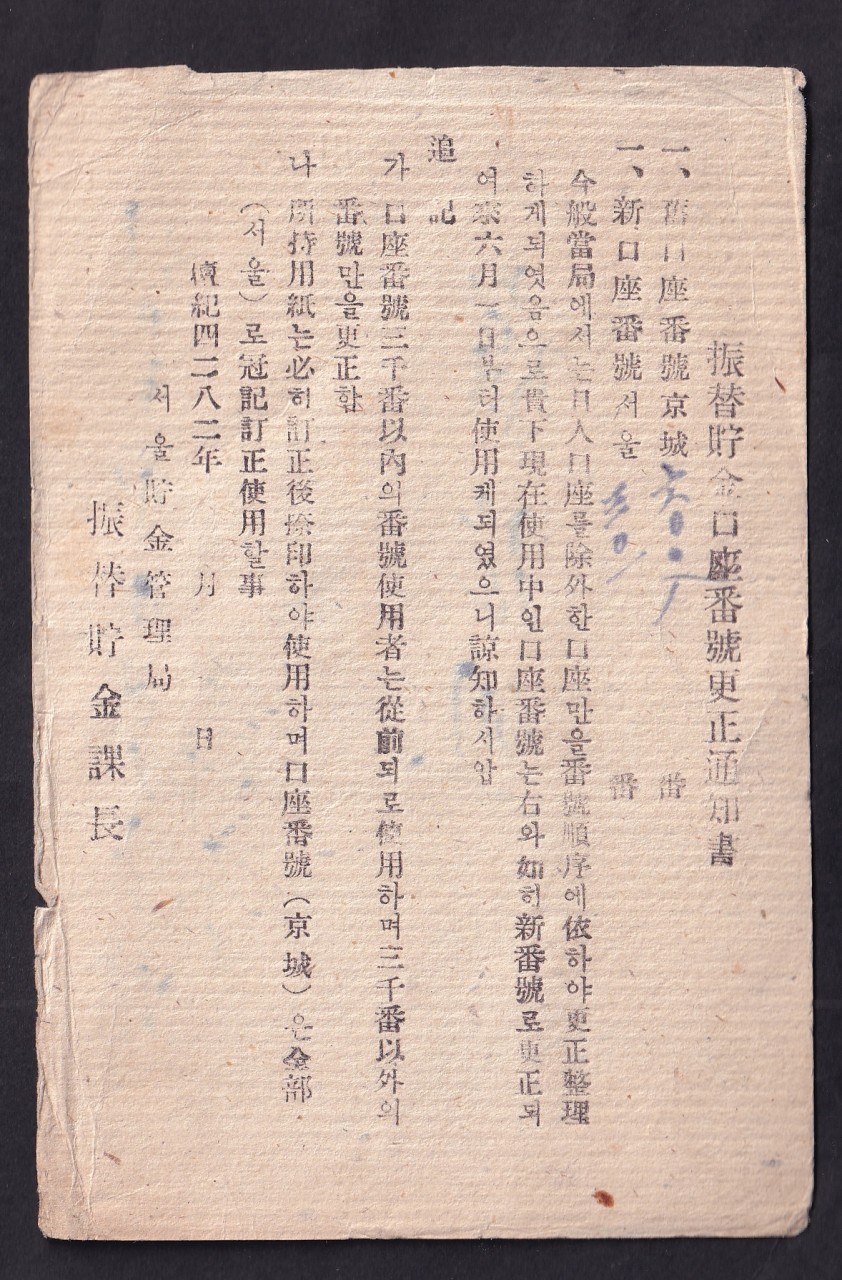 振替貯金口座番號更正通知書
一、舊口座番號京城 番
一、新口座番號서울 番
今般當局에서는日人口座를除外한口座만을番號順序에依하야更正整理
하게되엿음으로貴下現在使用中인口座番號는右와如히新番號로更正되
여來六月一日부터使用케되였으니諒知하시압
追記
가 口座番號三千番以內의番號使用者는從前되로使用하며三千番以外의
番號만을更正함
나 所持用紙는必히訂正後捺印하야使用하며口座番號(京城)은全部
(서울)로冠記訂正使用할事
檀紀四二八二年 月 日
서울貯金管理局
振替貯金課長